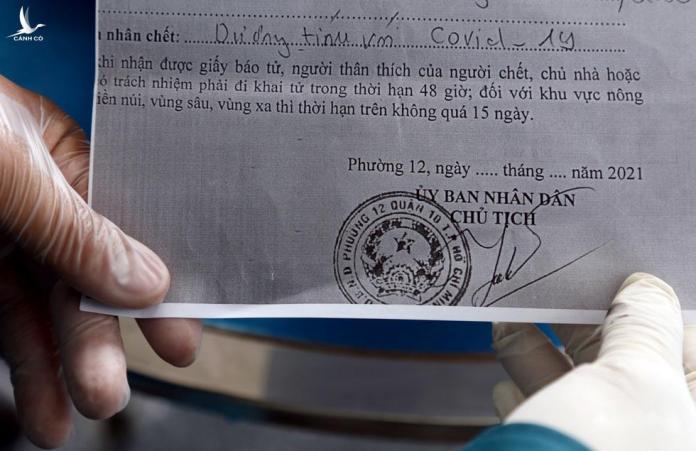 CÁNH CÒ
nhân chết: Dương tính với Covid-19
khi nhận được giấy báo tử, người thân thích của người chết, chủ nhà hoặc
ó trách nhiệm phải đi khai tử trong thời hạn 48 giờ; đối với khu vực nông
iền núi, vùng sâu, vùng xa thì thời hạn trên không quá 15 ngày.
Phường 12, ngày ..... tháng .... năm 2021
ỦY BAN NHÂN DÂN
CHỦ TỊCH
U.B.N.D PHƯỜNG 12 QUẬN 10 T.P HỒ CHÍ MINH